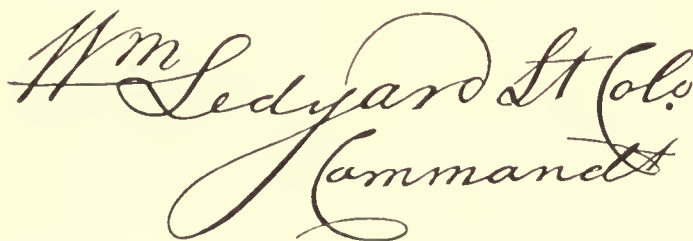 Wm Ledyard Lt Colo.
Commandt